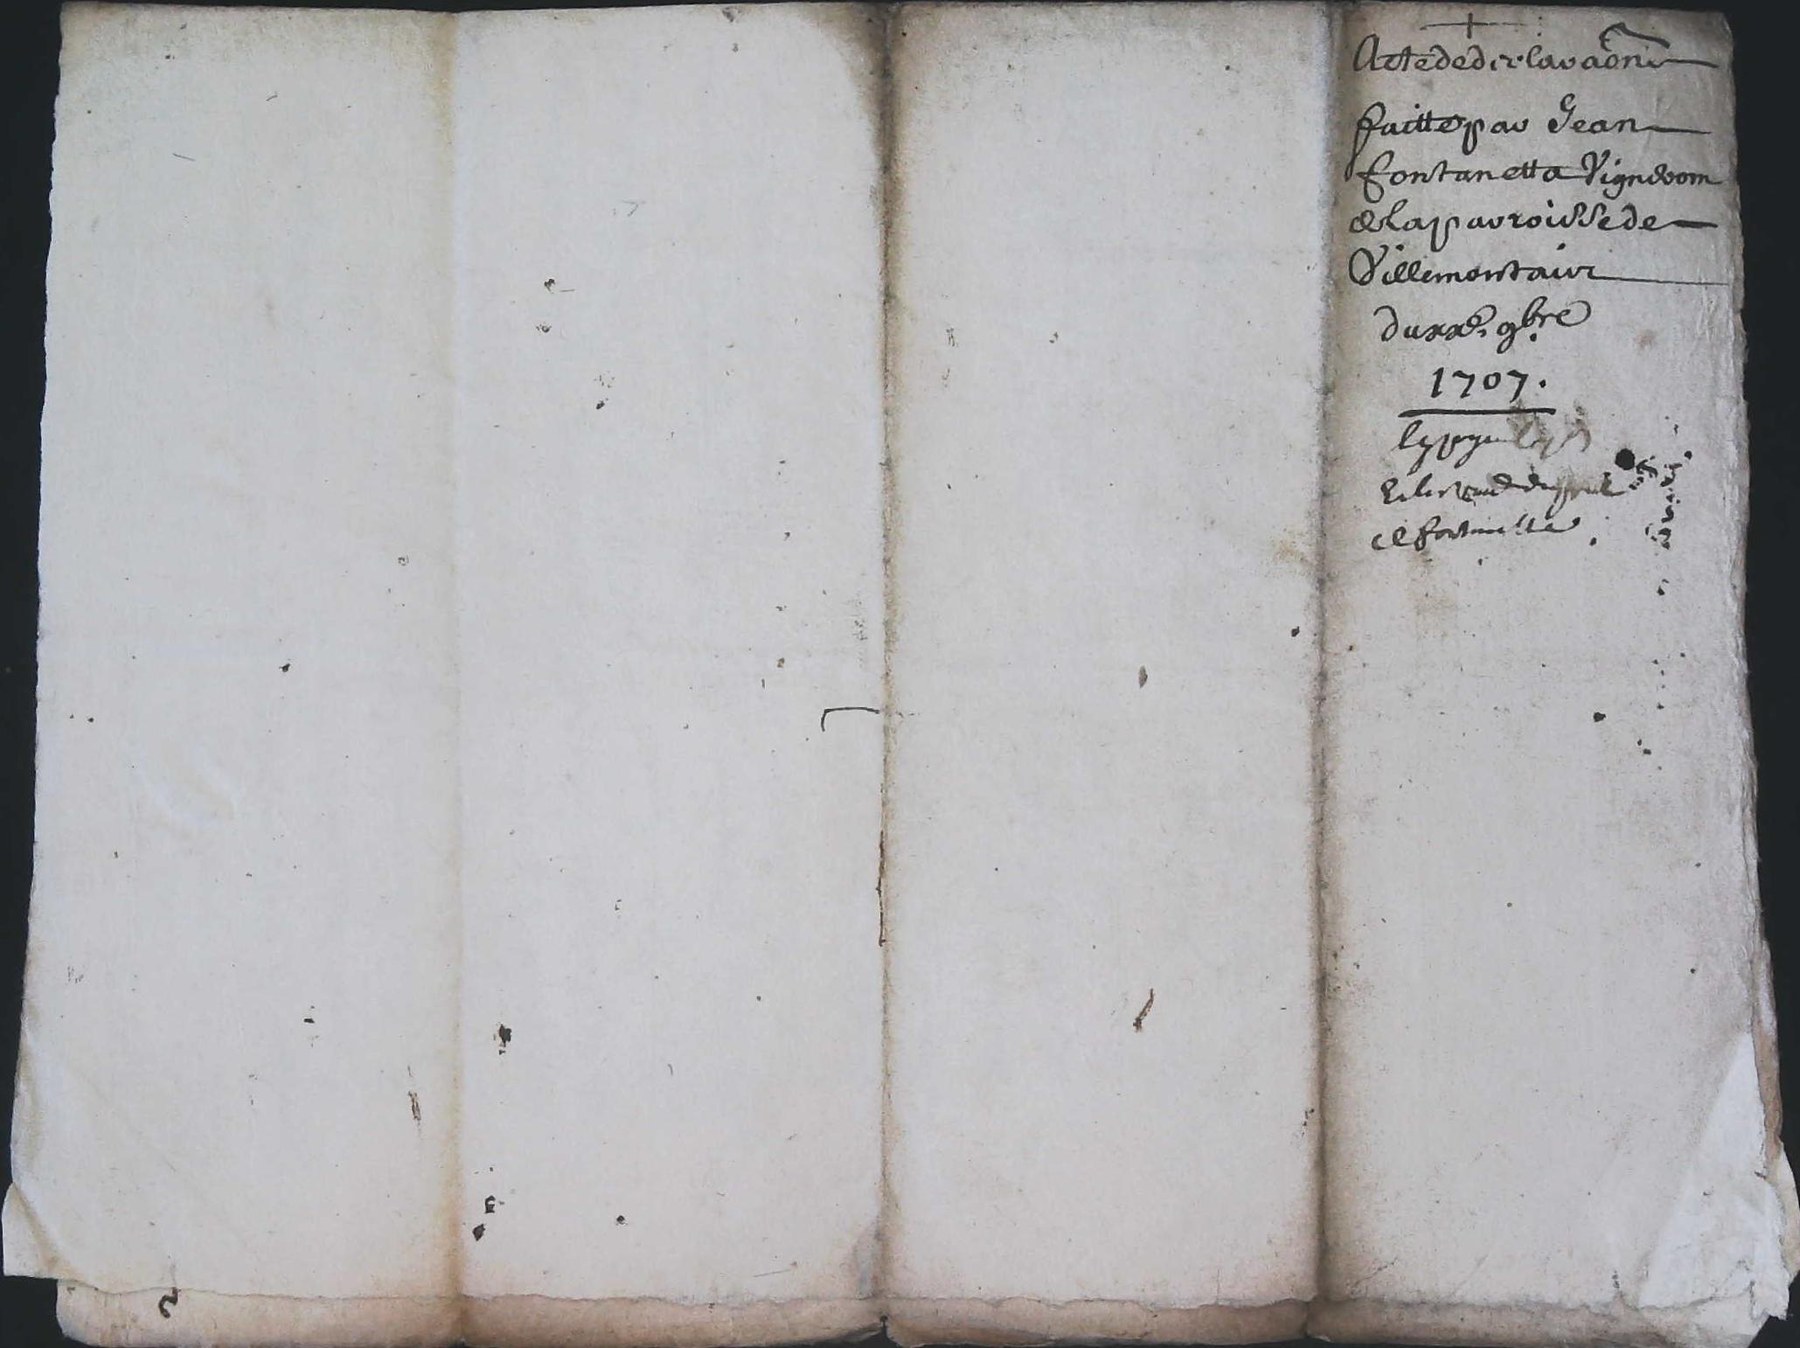 Acte de declaraōn
faitte par Jean
fontanetta Vigneron
de la parroisse de
Villemontair
du xxe 9bre
1707.
de fontanetta